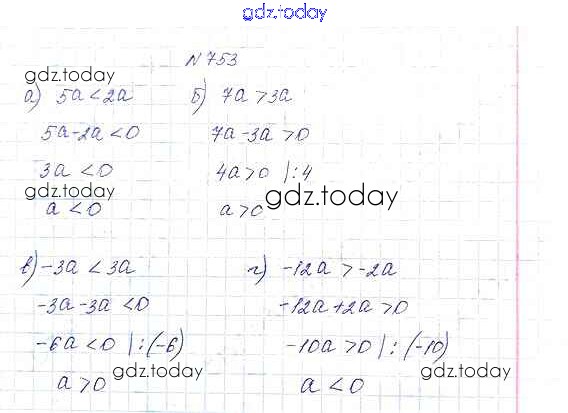 gdz.today
N 753
gdz.today
а) 5a < 2a
5a - 2a < 0
3a < 0
gdz.today
a < 0
б) 7a > 3a
7a - 3a > 0
4a > 0 |: 4
gdz.today
a > 0
в) -3a < 3a
-3a - 3a < 0
-6a < 0 |: (-6)
gdz.today
a > 0
г) -12a > -2a
-12a + 2a > 0
-10a > 0 |: (-10)
gdz.today
a < 0